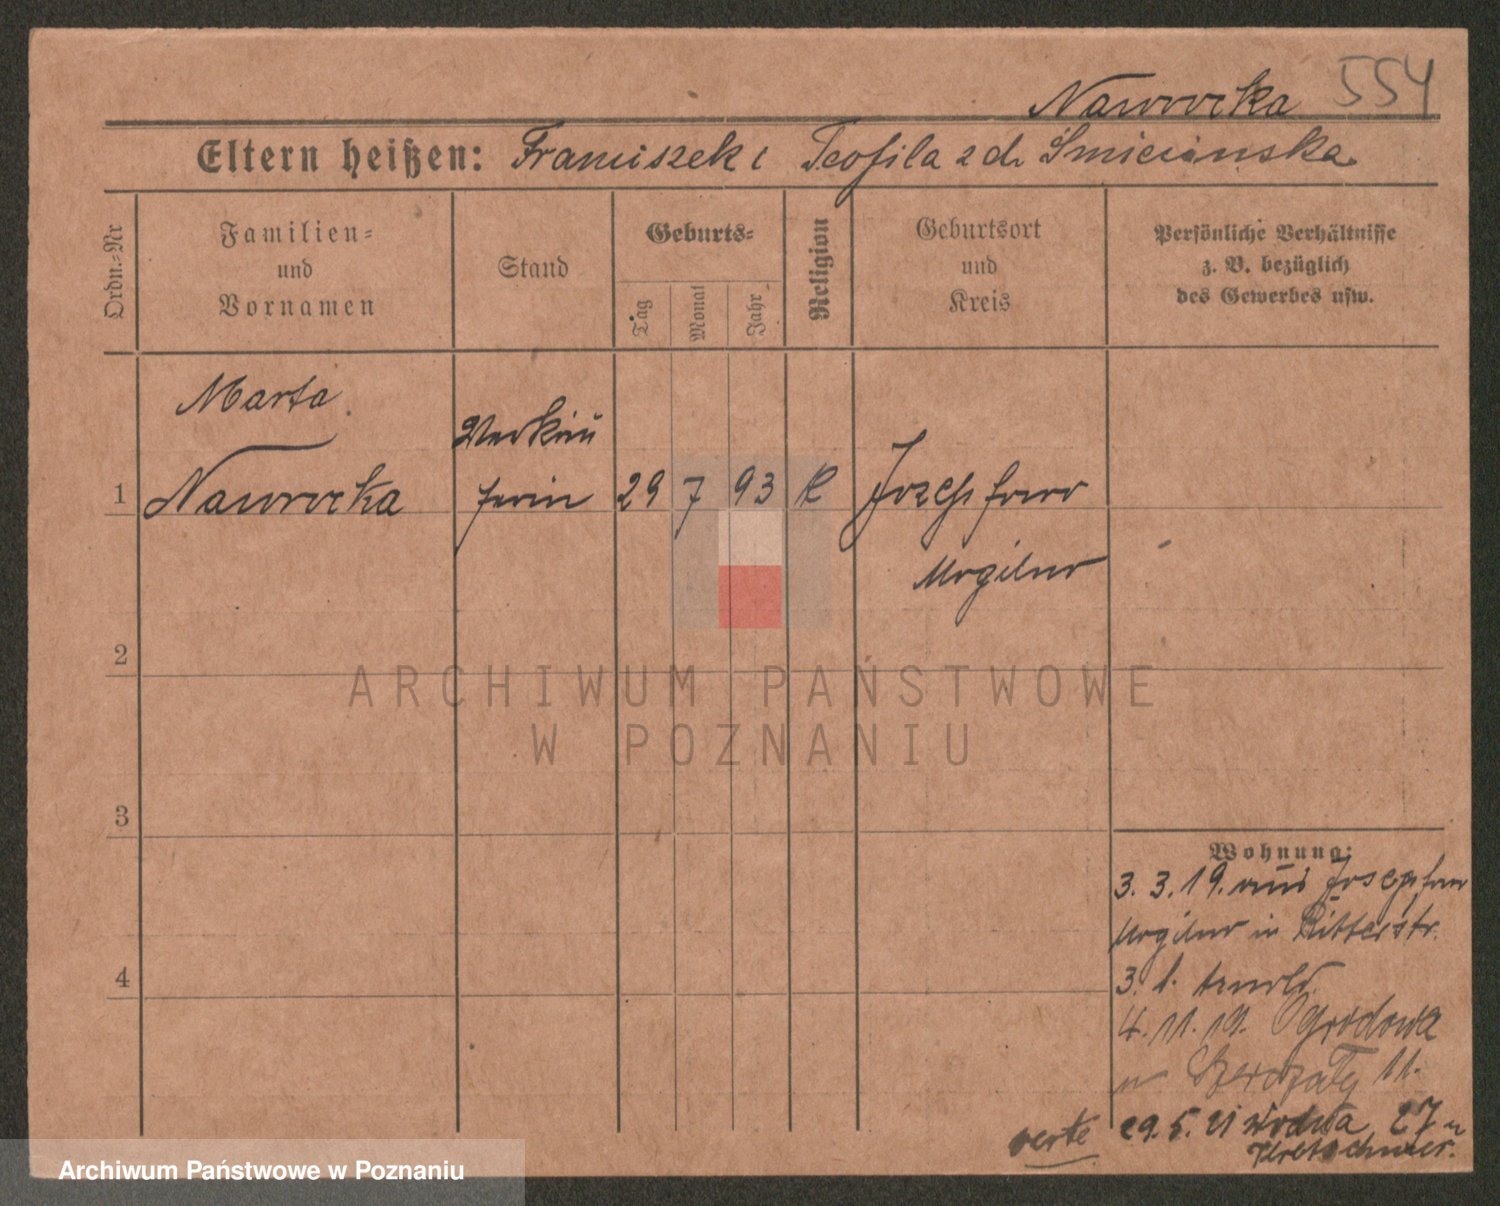 Nawrocka 554
Eltern heißen: Franciszek i Teofila z d. Śmiecińska
Ordn.-Nr
Familien-
und
Vornamen
Stand
Geburts-
Tag
Monat
Jahr
Religion
Geburtsort
und
Kreis
Persönliche Verhältnisse
z. B. bezüglich
des Gewerbes usw.
Marta
Verkäu
1 Nawrocka ferin 29 7 93 K Josephowo
Mogilno
2
ARCHIWUM PAŃSTWOWE
W POZNANIU
3
Wohnung:
3. 3. 19. aus
Mogilno in Ritterstr.
4
3. b. Arnold
4. 11. 19. Ogrodowa
11.
verte 29. 5. 21 Wodna 27 u
Archiwum Państwowe w Poznaniu